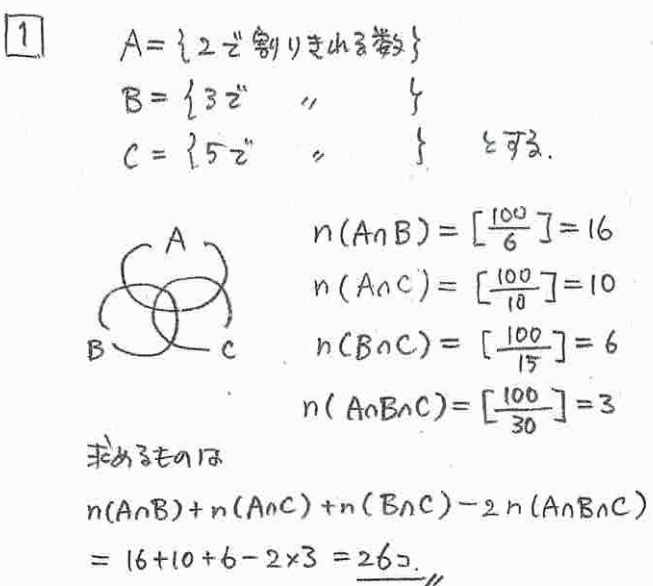 1
A={2で割りきれる数}
B={3で 〃 }
C={5で 〃 } とする.
A
B C
n(A∩B)=[100/6]=16
n(A∩C)=[100/10]=10
n(B∩C)=[100/15]=6
n(A∩B∩C)=[100/30]=3
求めるものは
n(A∩B)+n(A∩C)+n(B∩C)-2n(A∩B∩C)
=16+10+6-2×3=26コ.